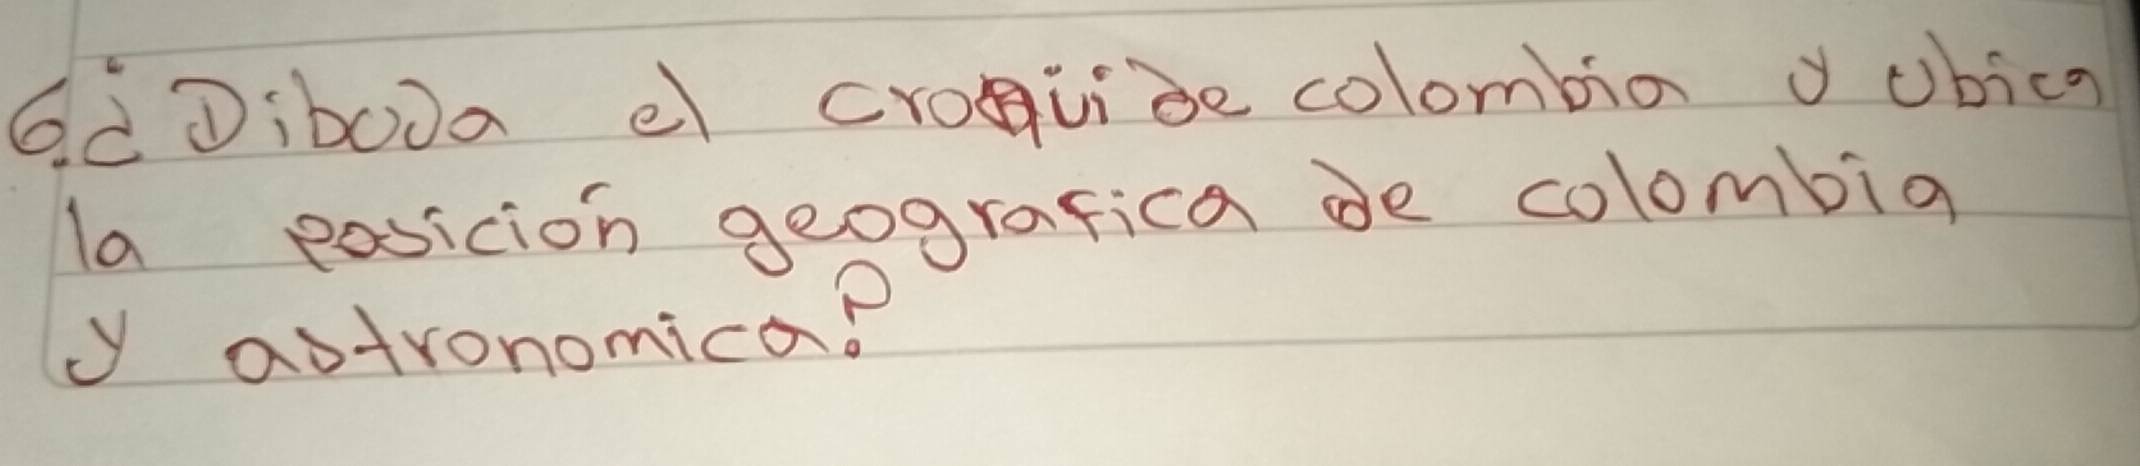 6.¿ Dibuja el croquide colombia y Ubica
la posición geografica de colombia
y astronomica?